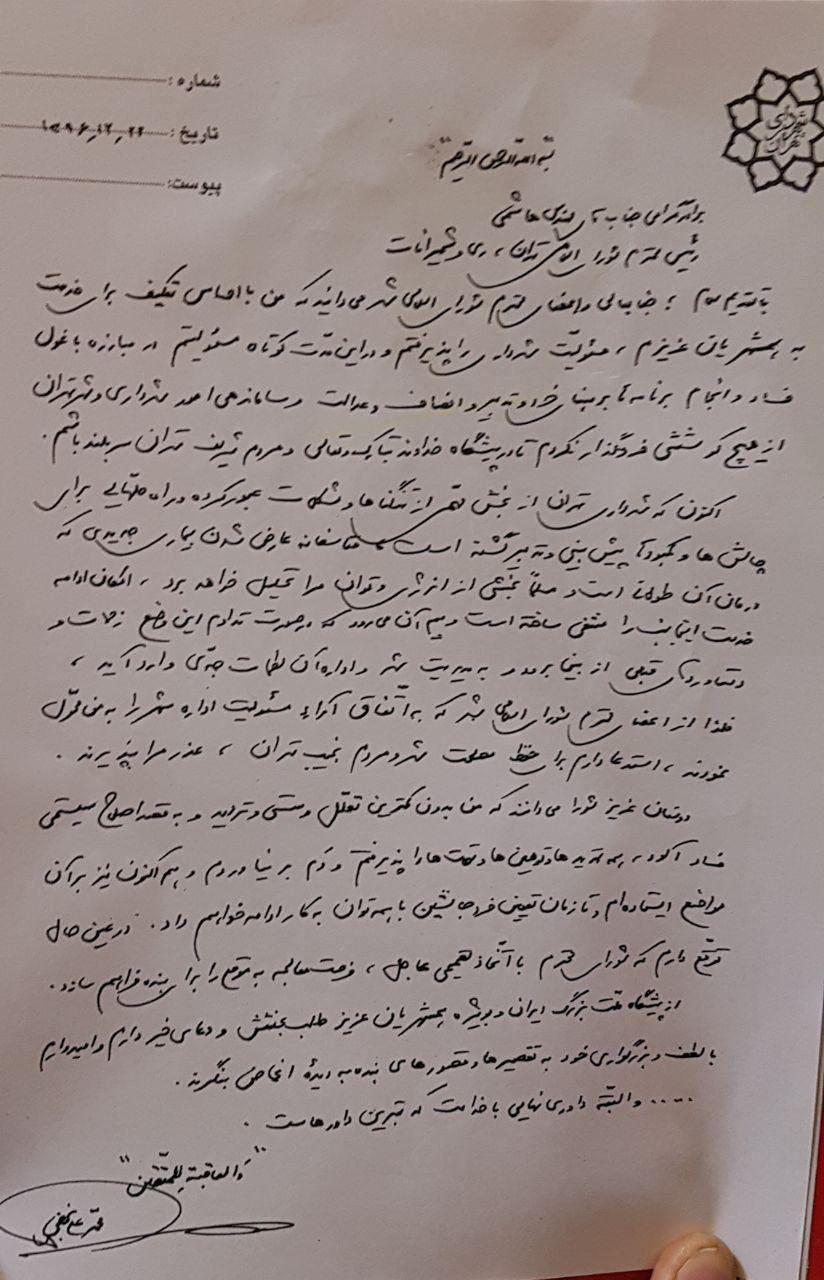 شماره :
تاریخ : ۱۳۹۶,۱۲,۲۲
پیوست:
شهرداری تهران
بسم الله الرحمن الرحیم
برادر گرامی جناب آقای مهندس هاشمی
رئیس محترم شورای اسلامی تهران ، ری و شمیرانات
با تقدیم سلام ؛ جنابعالی و اعضای محترم شورای اسلامی شهر می‌دانید که من با احساس تکلیف برای خدمت
به همشهریان عزیزم ، مسئولیّت شهرداری را پذیرفتم و در این مدّت کوتاه مسئولیتم در مبارزه با غول
فساد و انجام برنامه‌ها بر مبنای خرد و تدبیر و انصاف و عدالت و ساماندهی امور شهرداری و شهر تهران
از هیچ کوششی فروگذار نکردم تا در پیشگاه خداوند تبارک و تعالی و مردم شریف تهران سربلند باشم .
اکنون که شهرداری تهران از بخش مهمی از تنگناها و مشکلات عبور کرده و راه حلهایی برای
چالش ها و کمبودها پیش بینی و تدبیر گشته است متاسفانه عارض شدن بیماری جدیدی که
درمان آن طولانی است و مسلماً بخشی از انرژی و توان مرا تحلیل خواهد برد ، امکان ادامه
خدمت اینجانب را منتفی ساخته است و بیم آن می‌رود که در صورت تداوم این وضع زحمات و
دستاوردهای قبلی از بین برود و به مدیریت شهر و اداره آن لطمات جدّی وارد آید ،
فلذا از اعضای محترم شورای اسلامی شهر که به اتّفاق آراء مسئولیت اداره شهر را به من محوّل
نمودند ، استدعا دارم برای حفظ مصلحت شهر و مردم نجیب تهران ، عذر مرا بپذیرند .
دوستان عزیز شورا می‌دانند که من بدون کمترین تعلّل و سستی و تردید و به قصد اصلاح سیستمی
فساد آلود ، همه تهدیدها و توهین ها و تهمت ها را پذیرفتم و دم بر نیاوردم و هم اکنون نیز بر آن
مواضع ایستاده‌ام و تا زمان تعیین فرد جانشین با همه توان به کار ادامه خواهم داد . در عین حال
توقّع دارم که شورای محترم با اتّخاذ تصمیمی عاجل ، فرصت معالجه به موقع را برای بنده فراهم سازد .
از پیشگاه ملّت بزرگ ایران و بویژه همشهریان عزیز طلب بخشش و دعای خیر دارم و امیدوارم
با لطف و بزرگواری خود به تقصیرها و قصورهای بنده به دیدهٔ اغماض بنگرند .
..... و البتّه داوری نهایی با خداست که بهترین داورهاست .
"والعاقبة للمتّقین"
محمّد علی نجفی